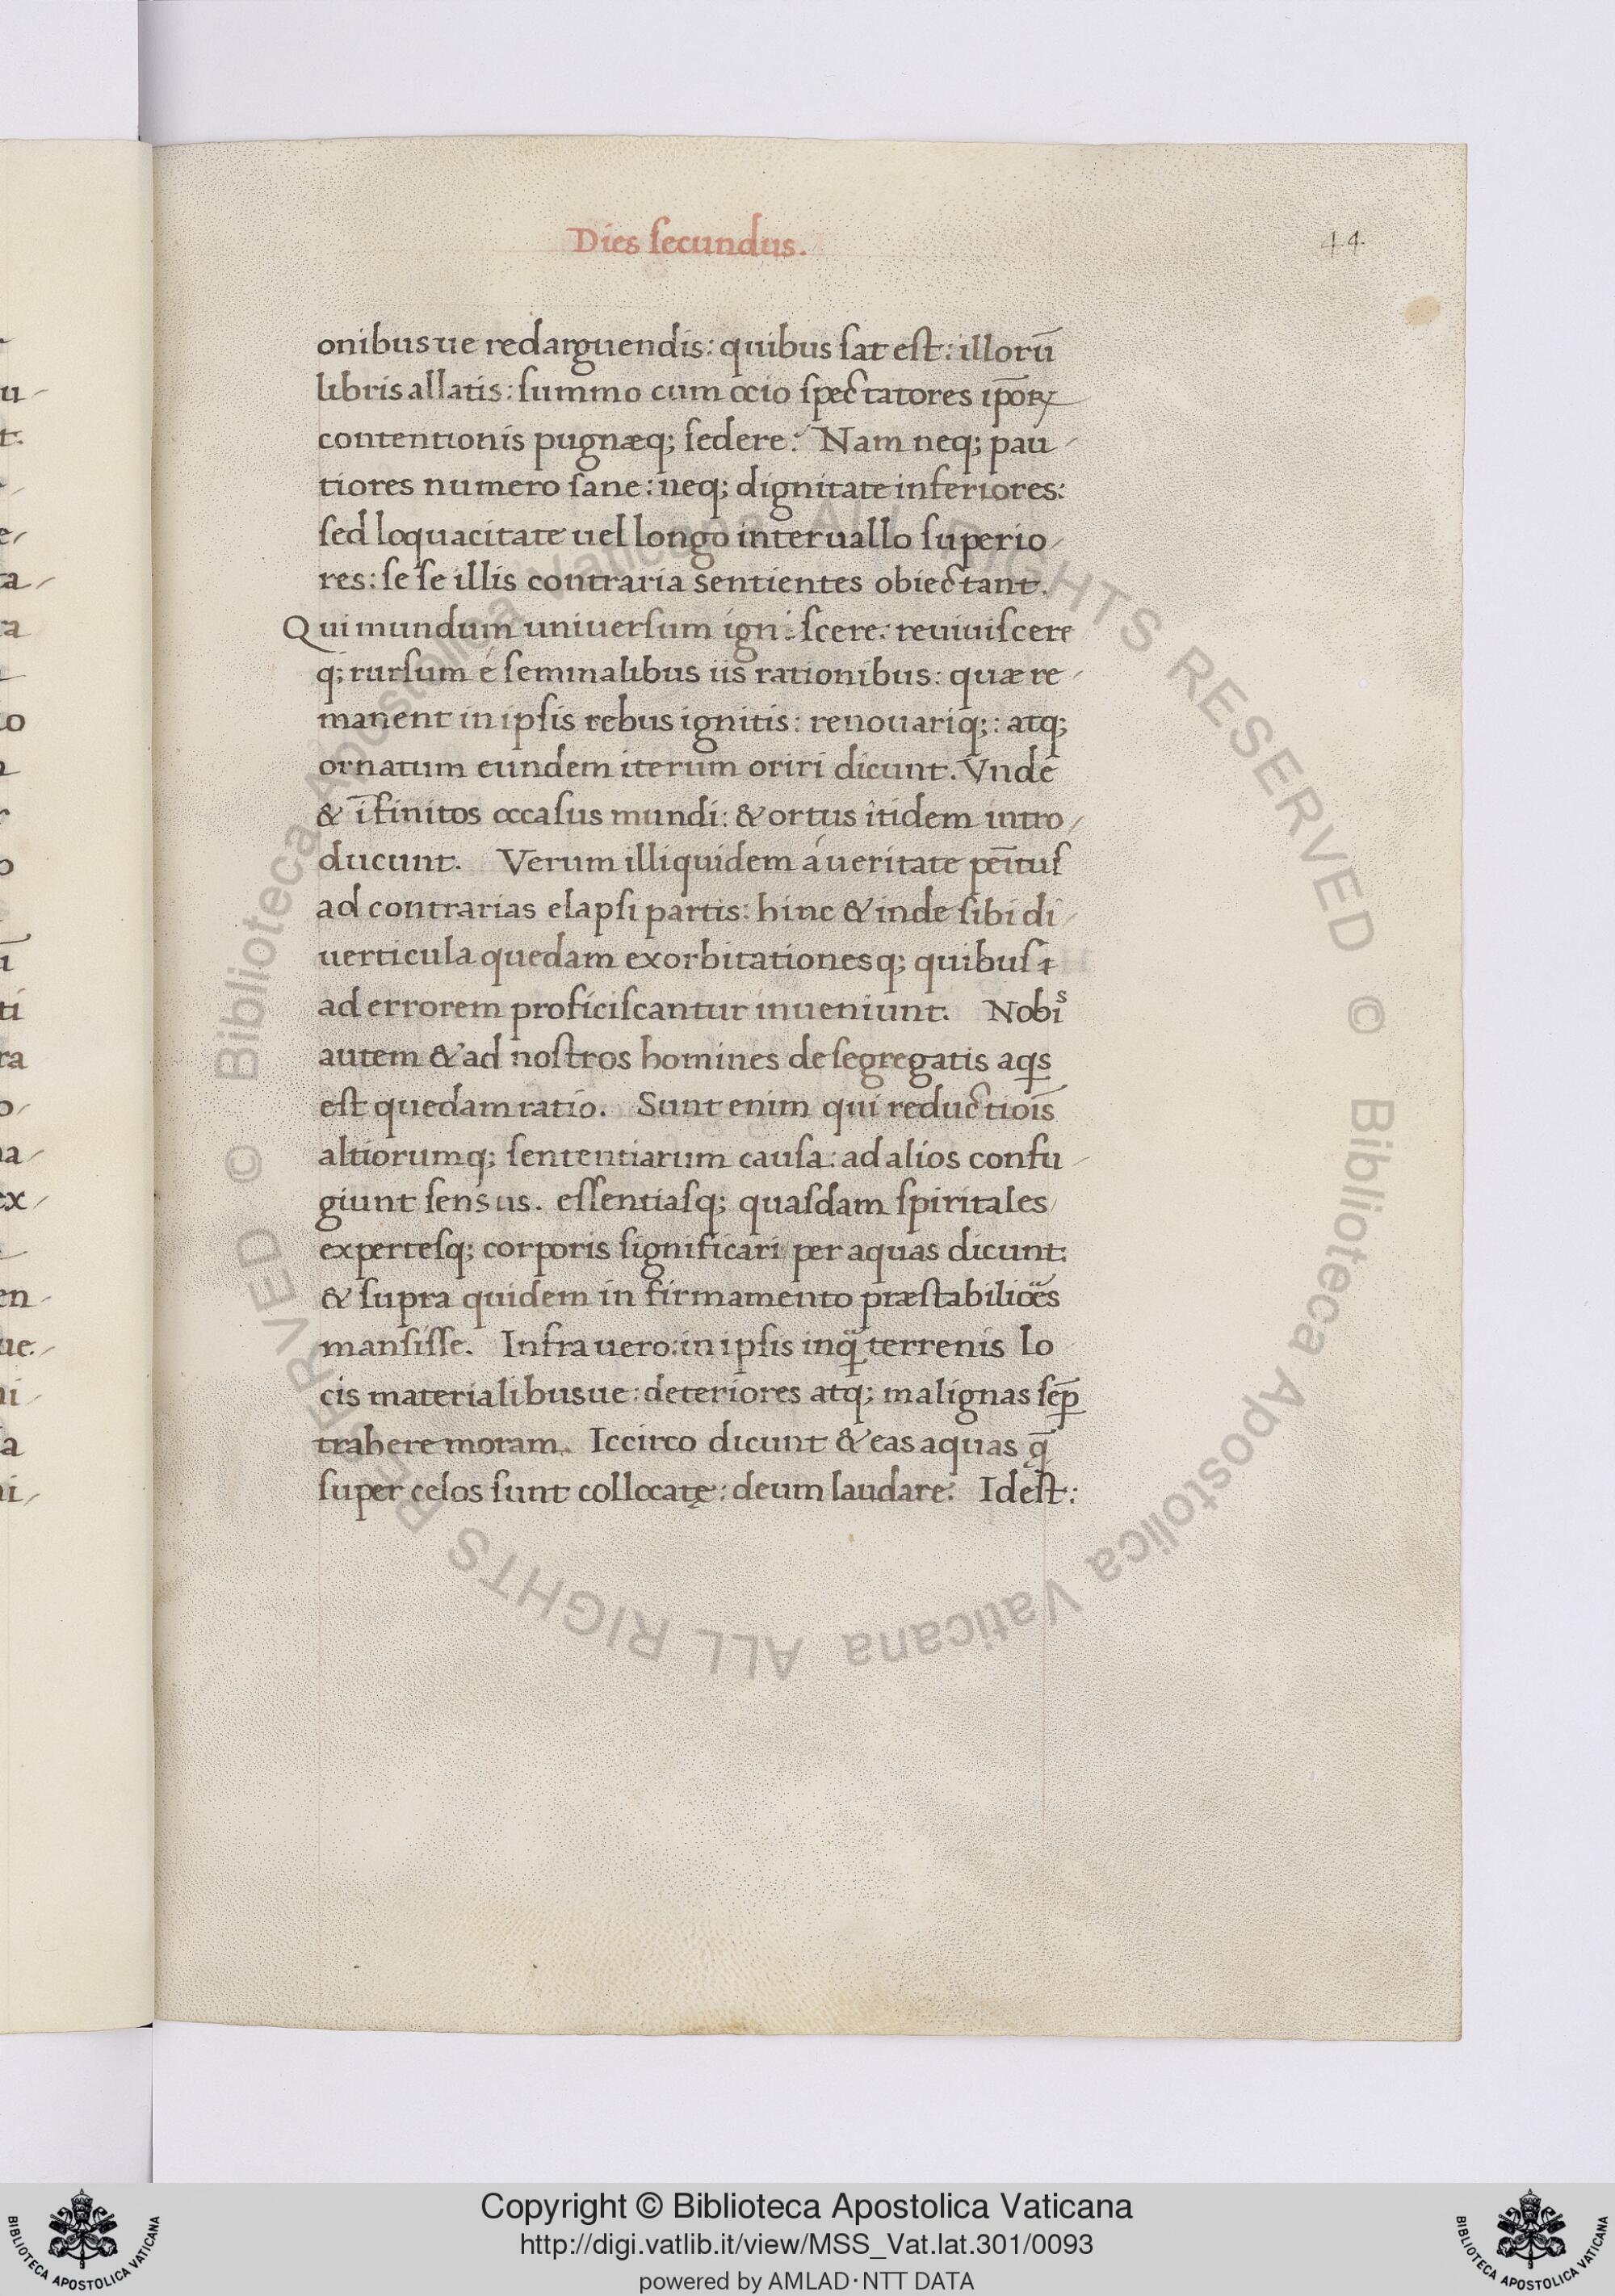 Dies ſecundus.
44
onibusue redarguendis: quibus ſat eſt: illorū
libris allatis: ſummo cum ocio ſpectatores ip̄oꝝ
contentionis pugnæq; ſedere. Nam neq; pau-
tiores numero ſane: neq; dignitate inferiores:
ſed loquacitate uel longo interuallo ſuperio-
res: ſe ſe illis contraria sentientes obiectant.
Qui mundum uniuerſum igniſcere: reuiuiſcere
q; rurſum é ſeminalibus iis rationibus: quæ re-
manent in ipſis rebus ignitis: renouariq;: atq;
ornatum eundem iterum oriri dicunt. Vnde
& īfinitos occaſus mundi: & ortus itidem intro-
ducunt. Verum illi quidem á ueritate pēituſ
ad contrarias elapſi partis: hinc & inde ſibi di-
uerticula quedam exorbitationesq; quibuſ
ad errorem proficiſcantur inueniunt. Nobis
autem & ad noſtros homines de ſegregatis aqs
eſt quedam ratio. Sunt enim qui reductiōis
altiorumq; ſententiarum cauſa: ad alios confu-
giunt ſensus. eſſentiaſq; quaſdam ſpiritales
experteſq; corporis ſignificari per aquas dicunt:
& ſupra quidem in firmamento præſtabilioēs
manſiſſe. Infra uero: in ipſis inq̄ terrenis lo
cis materialibusue: deteriores atq; malignas ſēp
trahere moram. Iccirco dicunt & eas aquas q̄
ſuper celos ſunt collocatę: deum laudare. Id eſt:
Copyright © Biblioteca Apostolica Vaticana
http://digi.vatlib.it/view/MSS_Vat.lat.301/0093
powered by AMLAD·NTT DATA
BIBLIOTECA APOSTOLICA VATICANA
BIBLIOTECA APOSTOLICA VATICANA
© Biblioteca Apostolica Vaticana ALL RIGHTS RESERVED © Biblioteca Apostolica Vaticana ALL RIGHTS RESERVED